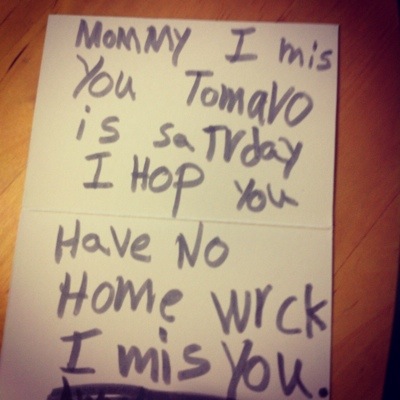 MOMMY I mis
You TomaVO
is SaTVday
I HOP You
Have No
Home wrck
I mis You.